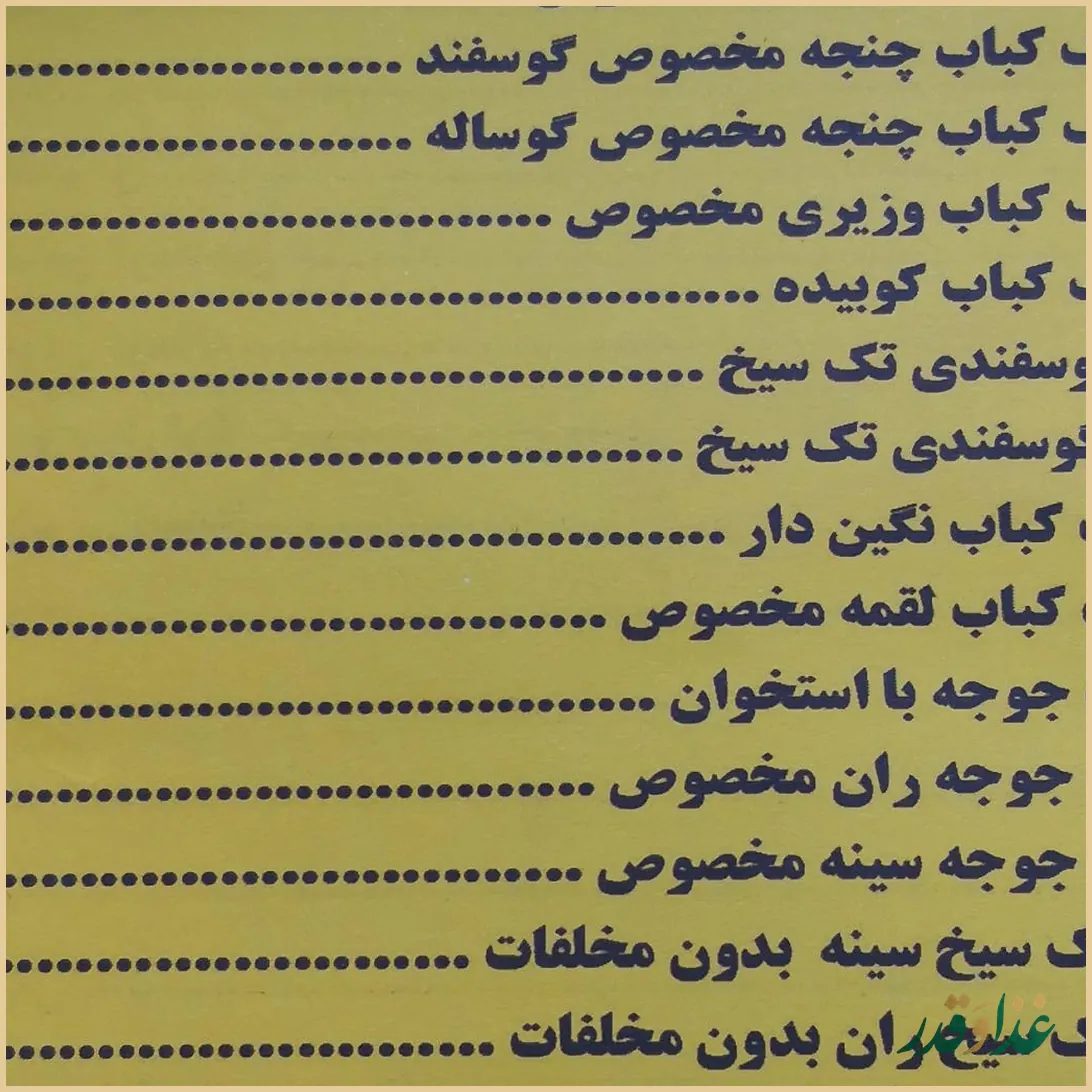 کباب چنجه مخصوص گوسفند ........................
کباب چنجه مخصوص گوساله ........................
کباب وزیری مخصوص ................................
کباب کوبیده ...........................................
وسفندی تک سیخ ........................................
گوسفندی تک سیخ ......................................
کباب نگین دار .........................................
کباب لقمه مخصوص ..................................
جوجه با استخوان .....................................
جوجه ران مخصوص .................................
جوجه سینه مخصوص ................................
سیخ سینه بدون مخلفات ..........................
سیخ ران بدون مخلفات ...........................
غذا و قدر